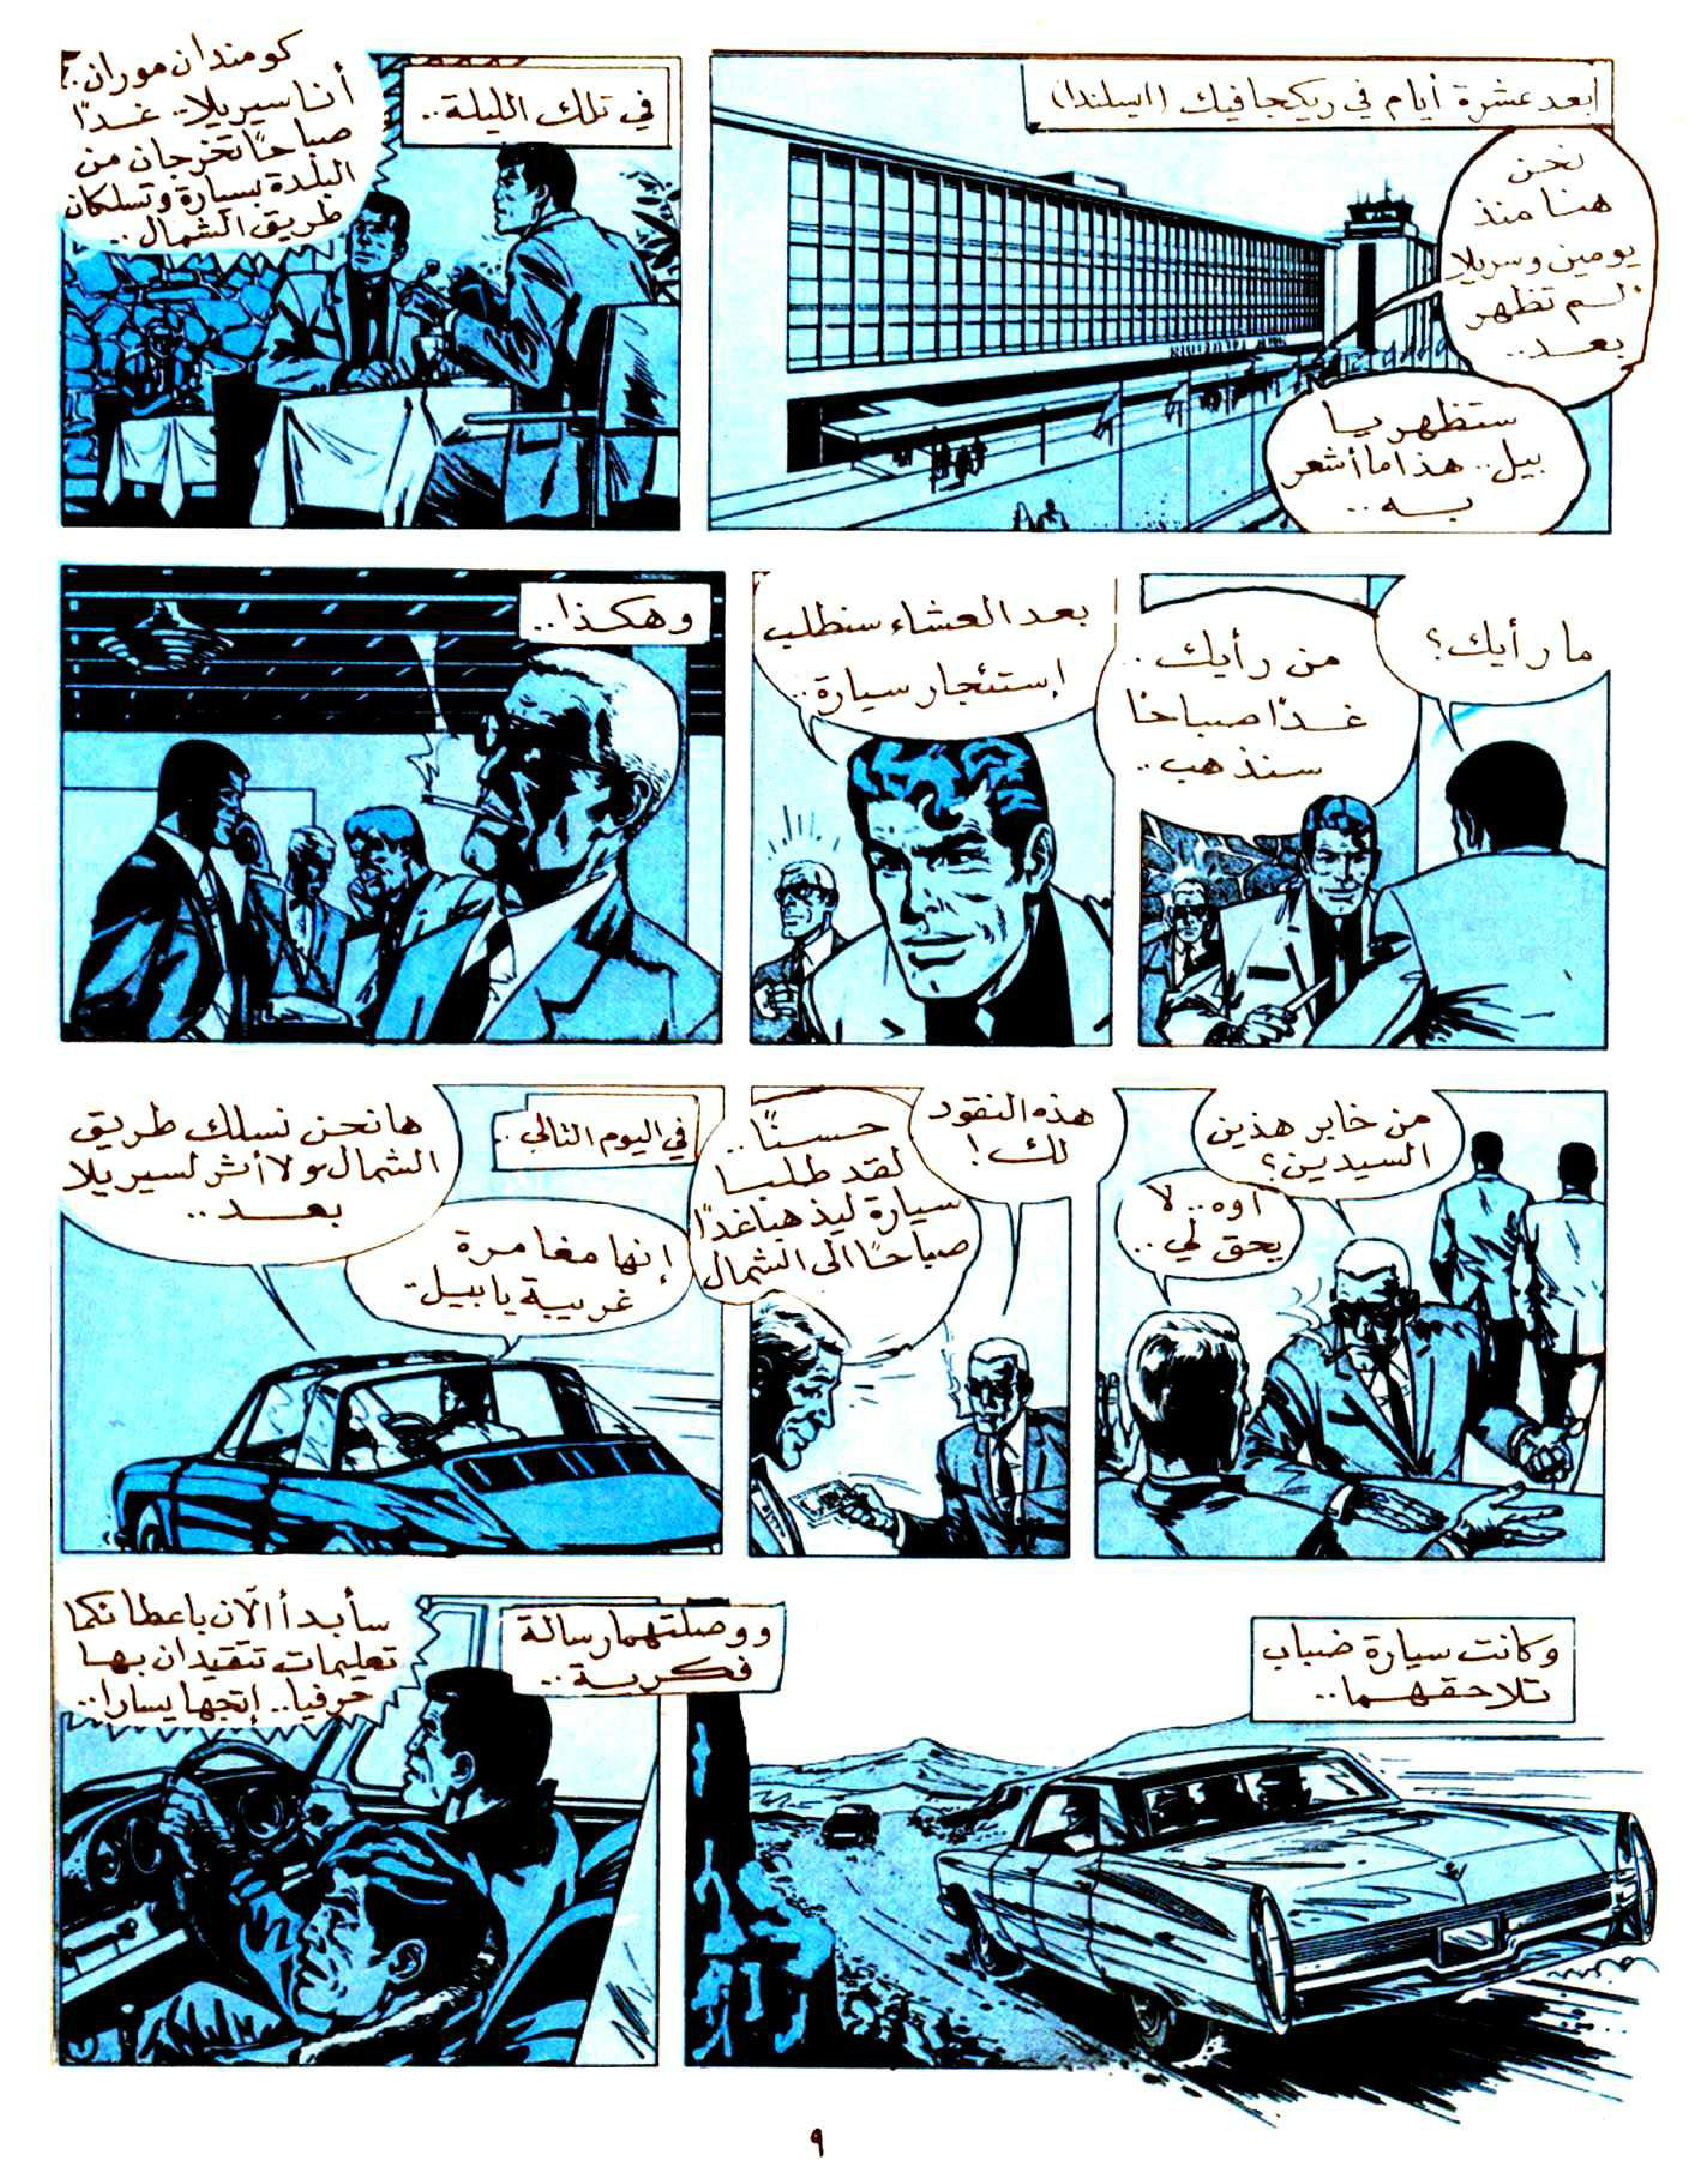 بعد عشرة أيام في ريكجافيك (ايسلندا)
نحن
هنا منذ
يومين وسريلا
لم تظهر
بعد..
ستظهر يا
بيل.. هذا ما أشعر
به..
في تلك الليلة..
كومندان موران..
أنا سيريلا.. غدًا
صباحًا تخرجان من
البلدة بسيارة وتسلكان
طريق الشمال..
ما رأيك؟
من رأيك..
غدًا صباحًا
سنذهب..
بعد العشاء سنطلب
إستئجار سيارة..
وهكذا..
من خابر هذين
السيدين؟
اوه.. لا
يحق لي..
هذه النقود
لك!
حسنًا..
لقد طلبا
سيارة ليذهبا غدًا
صباحًا الى الشمال
في اليوم التالي..
ها نحن نسلك طريق
الشمال ولا أثر لسيريلا
بعد..
إنها مغامرة
غريبة يا بيل..
وكانت سيارة ضباب
تلاحقهما..
ووصلتهما رسالة
فكرية..
سأبدأ الآن باعطائكما
تعليمات تتقيدان بها
حرفيا.. إتجها يسارا..
٩